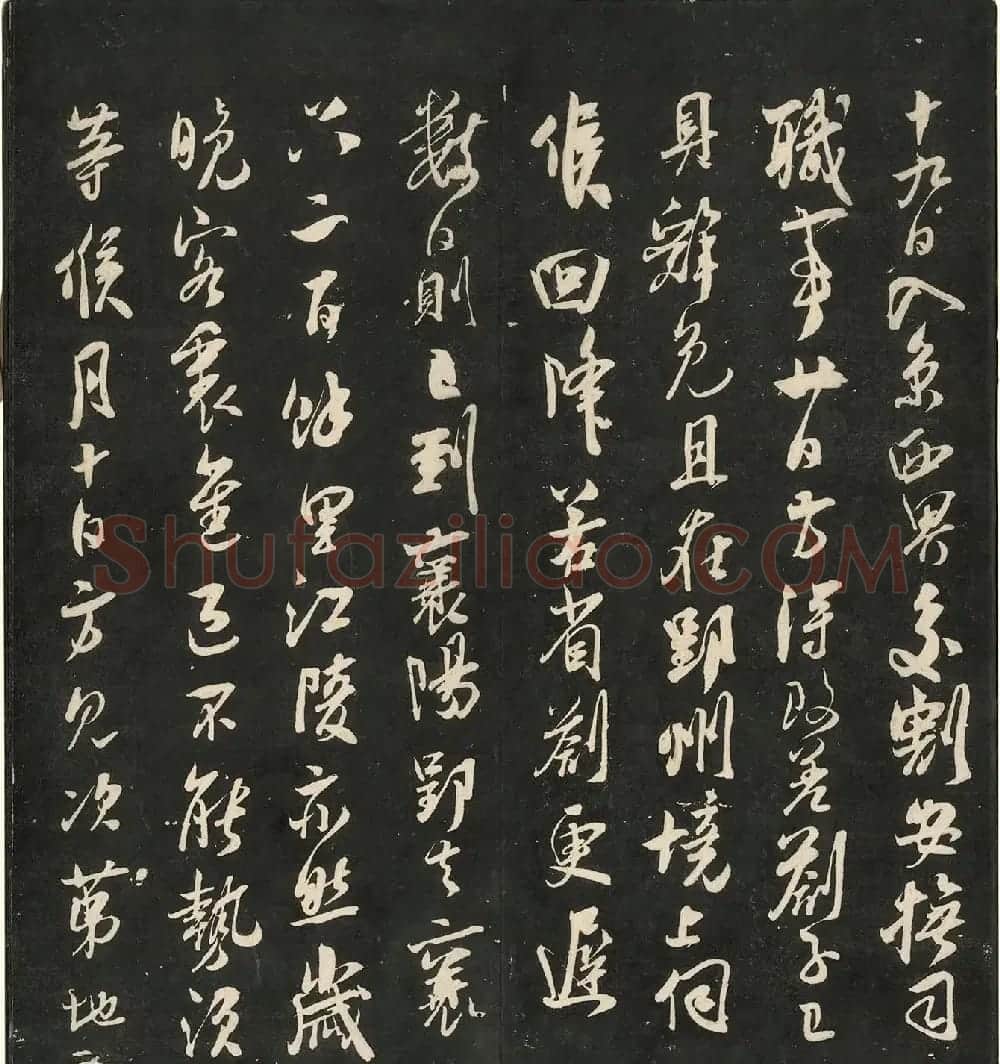 十九日入京西界交割安撫司
職事廿日方得改差劄子已
具辭免且在郢州境上伺
候回降若省劄更遲
數日則已到襄陽郢去襄
只二百餘里江陵亦然歲
晚客裏進退不能勢須
等候月十日方見次第地
Shufaziliao.com